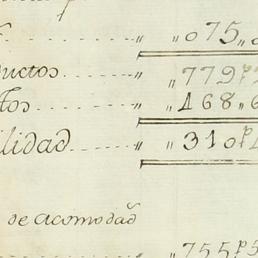 "075,,8
ductos.....,, ,,779ps
tos.........,, ,,468,,6
ilidad.....,, ,,310ps
de acomodad
,,755ps